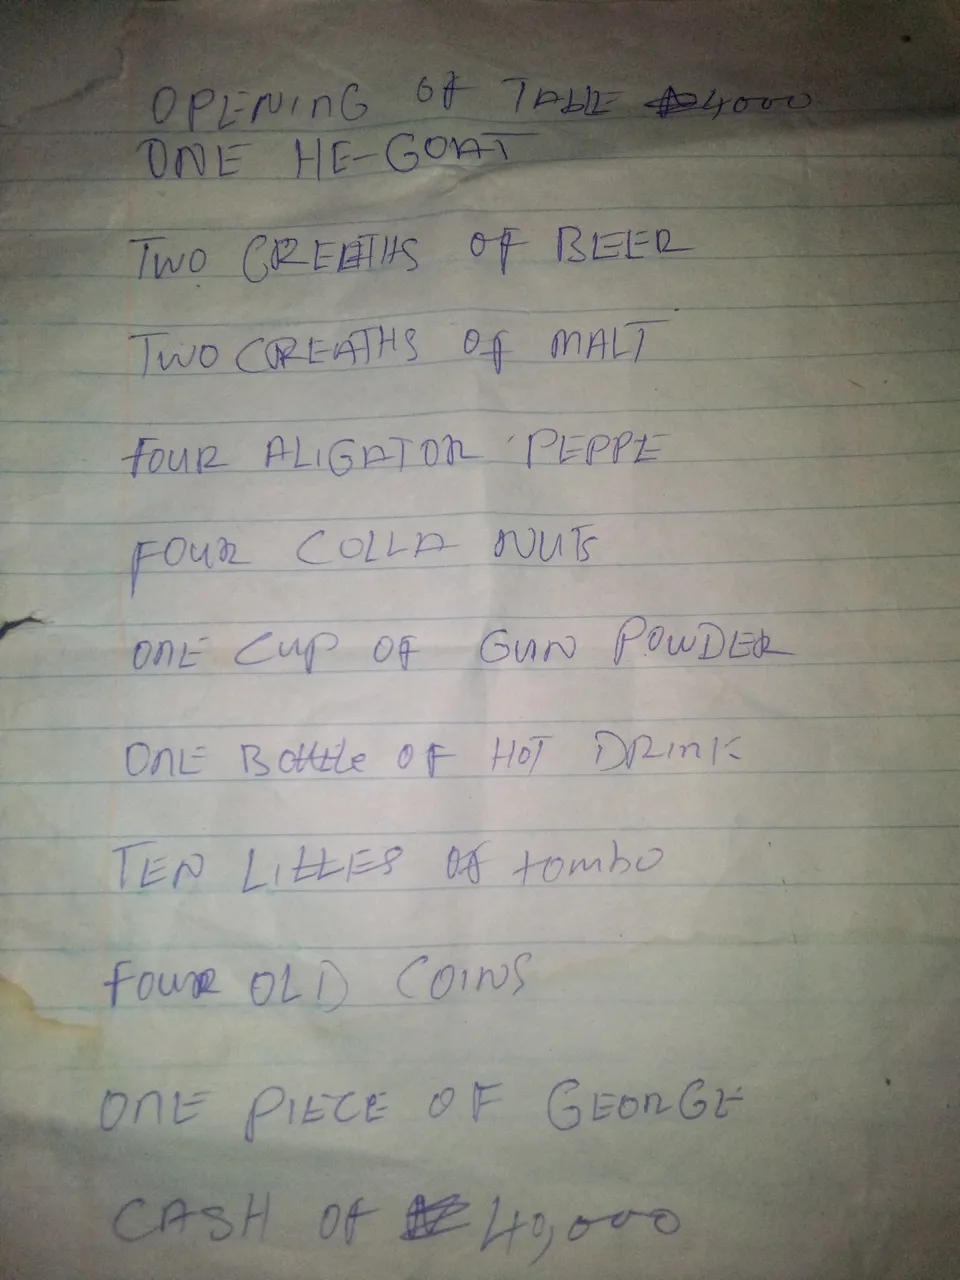 OPENING OF TABLE ₦4,000
ONE HE-GOAT
TWO CREETHS OF BEER
TWO CREATHS OF MALT
FOUR ALIGATOR PEPPE
FOUR COLLA NUTS
ONE CUP OF GUN POWDER
ONE Bottle OF HOT DRINK
TEN LITTES OF tombo
FOUR OLD COINS
ONE PIECE OF GEORGE
CASH OF ₦40,000